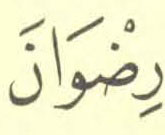 رِضْوَانَ